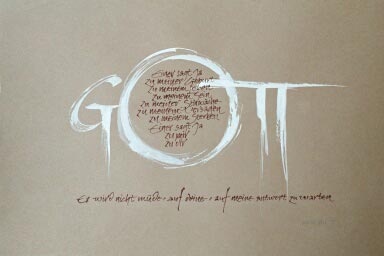 GOTT
Einer sagt Ja
zu meiner Geburt
zu meinem Leben
zu meinem Sein
zu meiner Schwäche
zu meinem Versagen
zu meinem Sterben
Einer sagt Ja
zu mir
zu dir
Er wird nicht müde, auf deine, auf meine Antwort zu warten